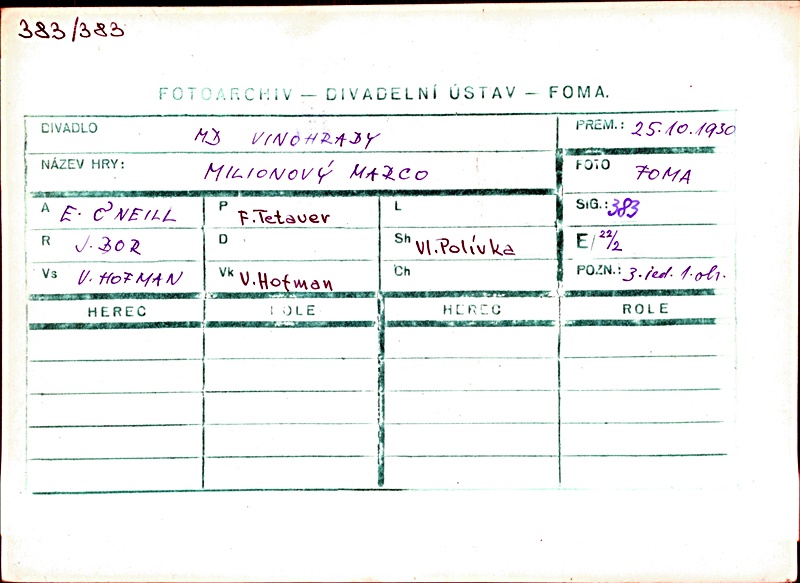 383/383
FOTOARCHIV — DIVADELNÍ ÚSTAV — FOMA.
DIVADLO MD VINOHRADY PREM.: 25.10.1930
NÁZEV HRY: MILIONOVÝ MARCO FOTO FOMA
A E. O'NEILL P F. Tetauer L SIG.: 383
R J. BOR D Sh Vl. Polívka E/22/2
Vs V. HOFMAN Vk V. Hofman Ch POZN.: 3. jed. 1. obr.
HEREC ROLE HEREC ROLE